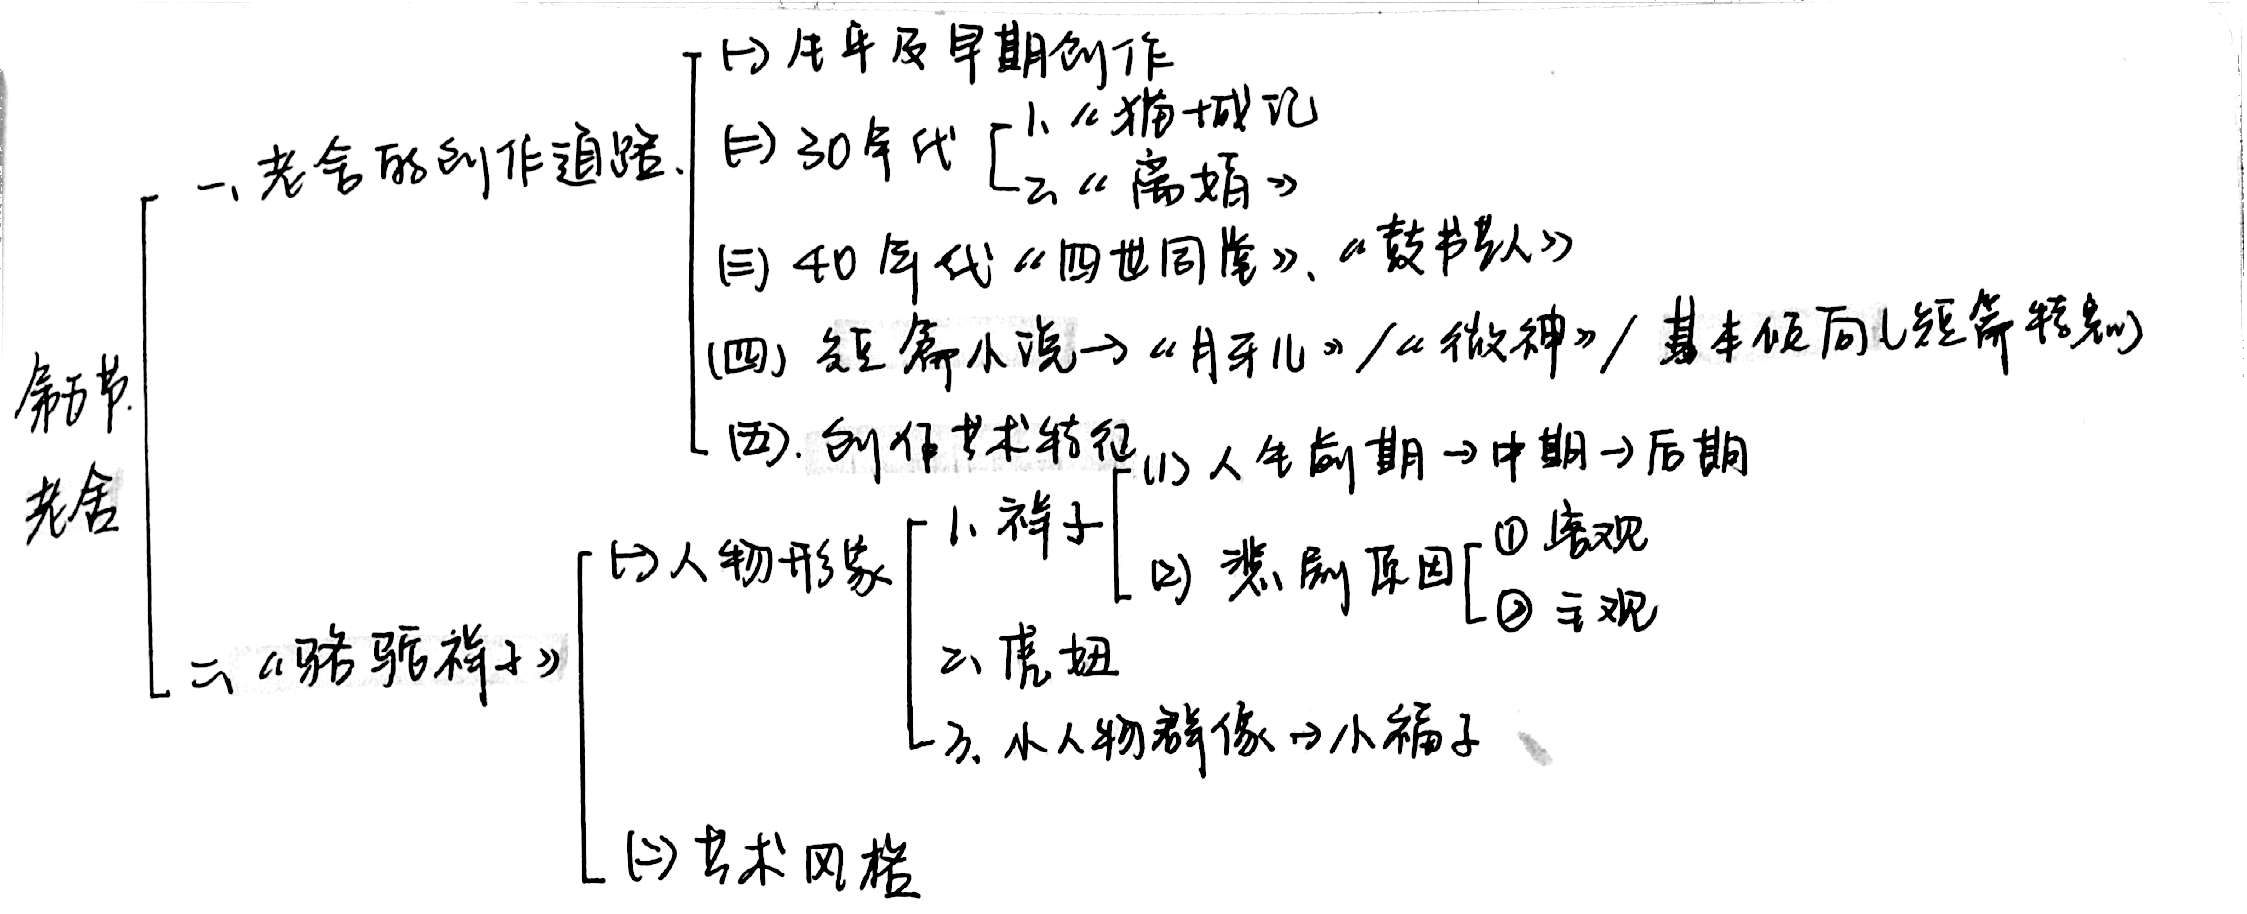 第五节
老舍
一、老舍的创作道路.
(一) 生平及早期创作
(二) 30年代
1、《猫城记
2、《离婚》
(三) 40年代《四世同堂》、《鼓书艺人》
(四) 短篇小说→《月牙儿》/《微神》/基本倾向(短篇特别)
(五). 创作艺术特征
二、《骆驼祥子》
(一) 人物形象
1、祥子
(1) 人生前期→中期→后期
(2) 悲剧原因
① 客观
② 主观
2、虎妞
3、小人物群像→小福子
(二) 艺术风格